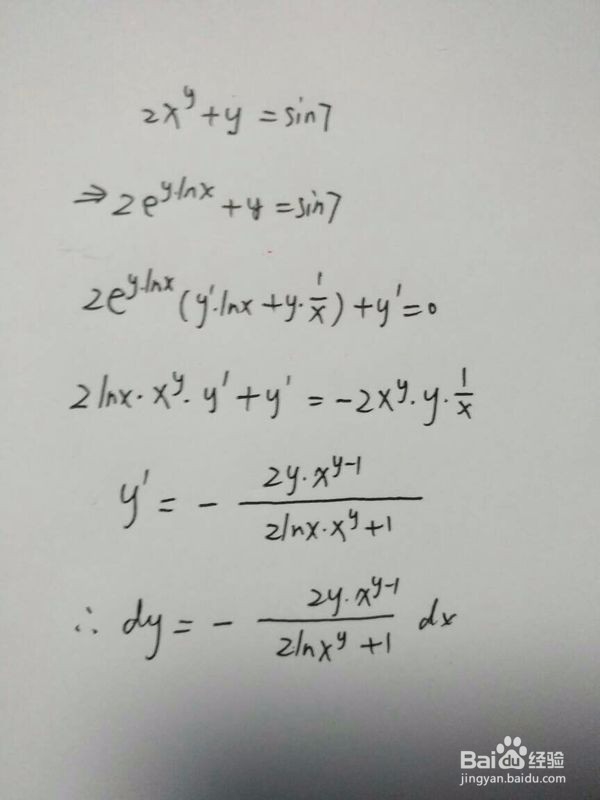 2x^y + y = sin7
⇒ 2e^{y·lnx} + y = sin7
2e^{y·lnx}(y'·lnx + y·1/x) + y' = 0
2lnx·x^y·y' + y' = -2x^y·y·1/x
y' = - 2y·x^{y-1} / (2lnx·x^y + 1)
∴ dy = - 2y·x^{y-1} / (2lnx^y + 1) dx
Baidu经验
jingyan.baidu.com